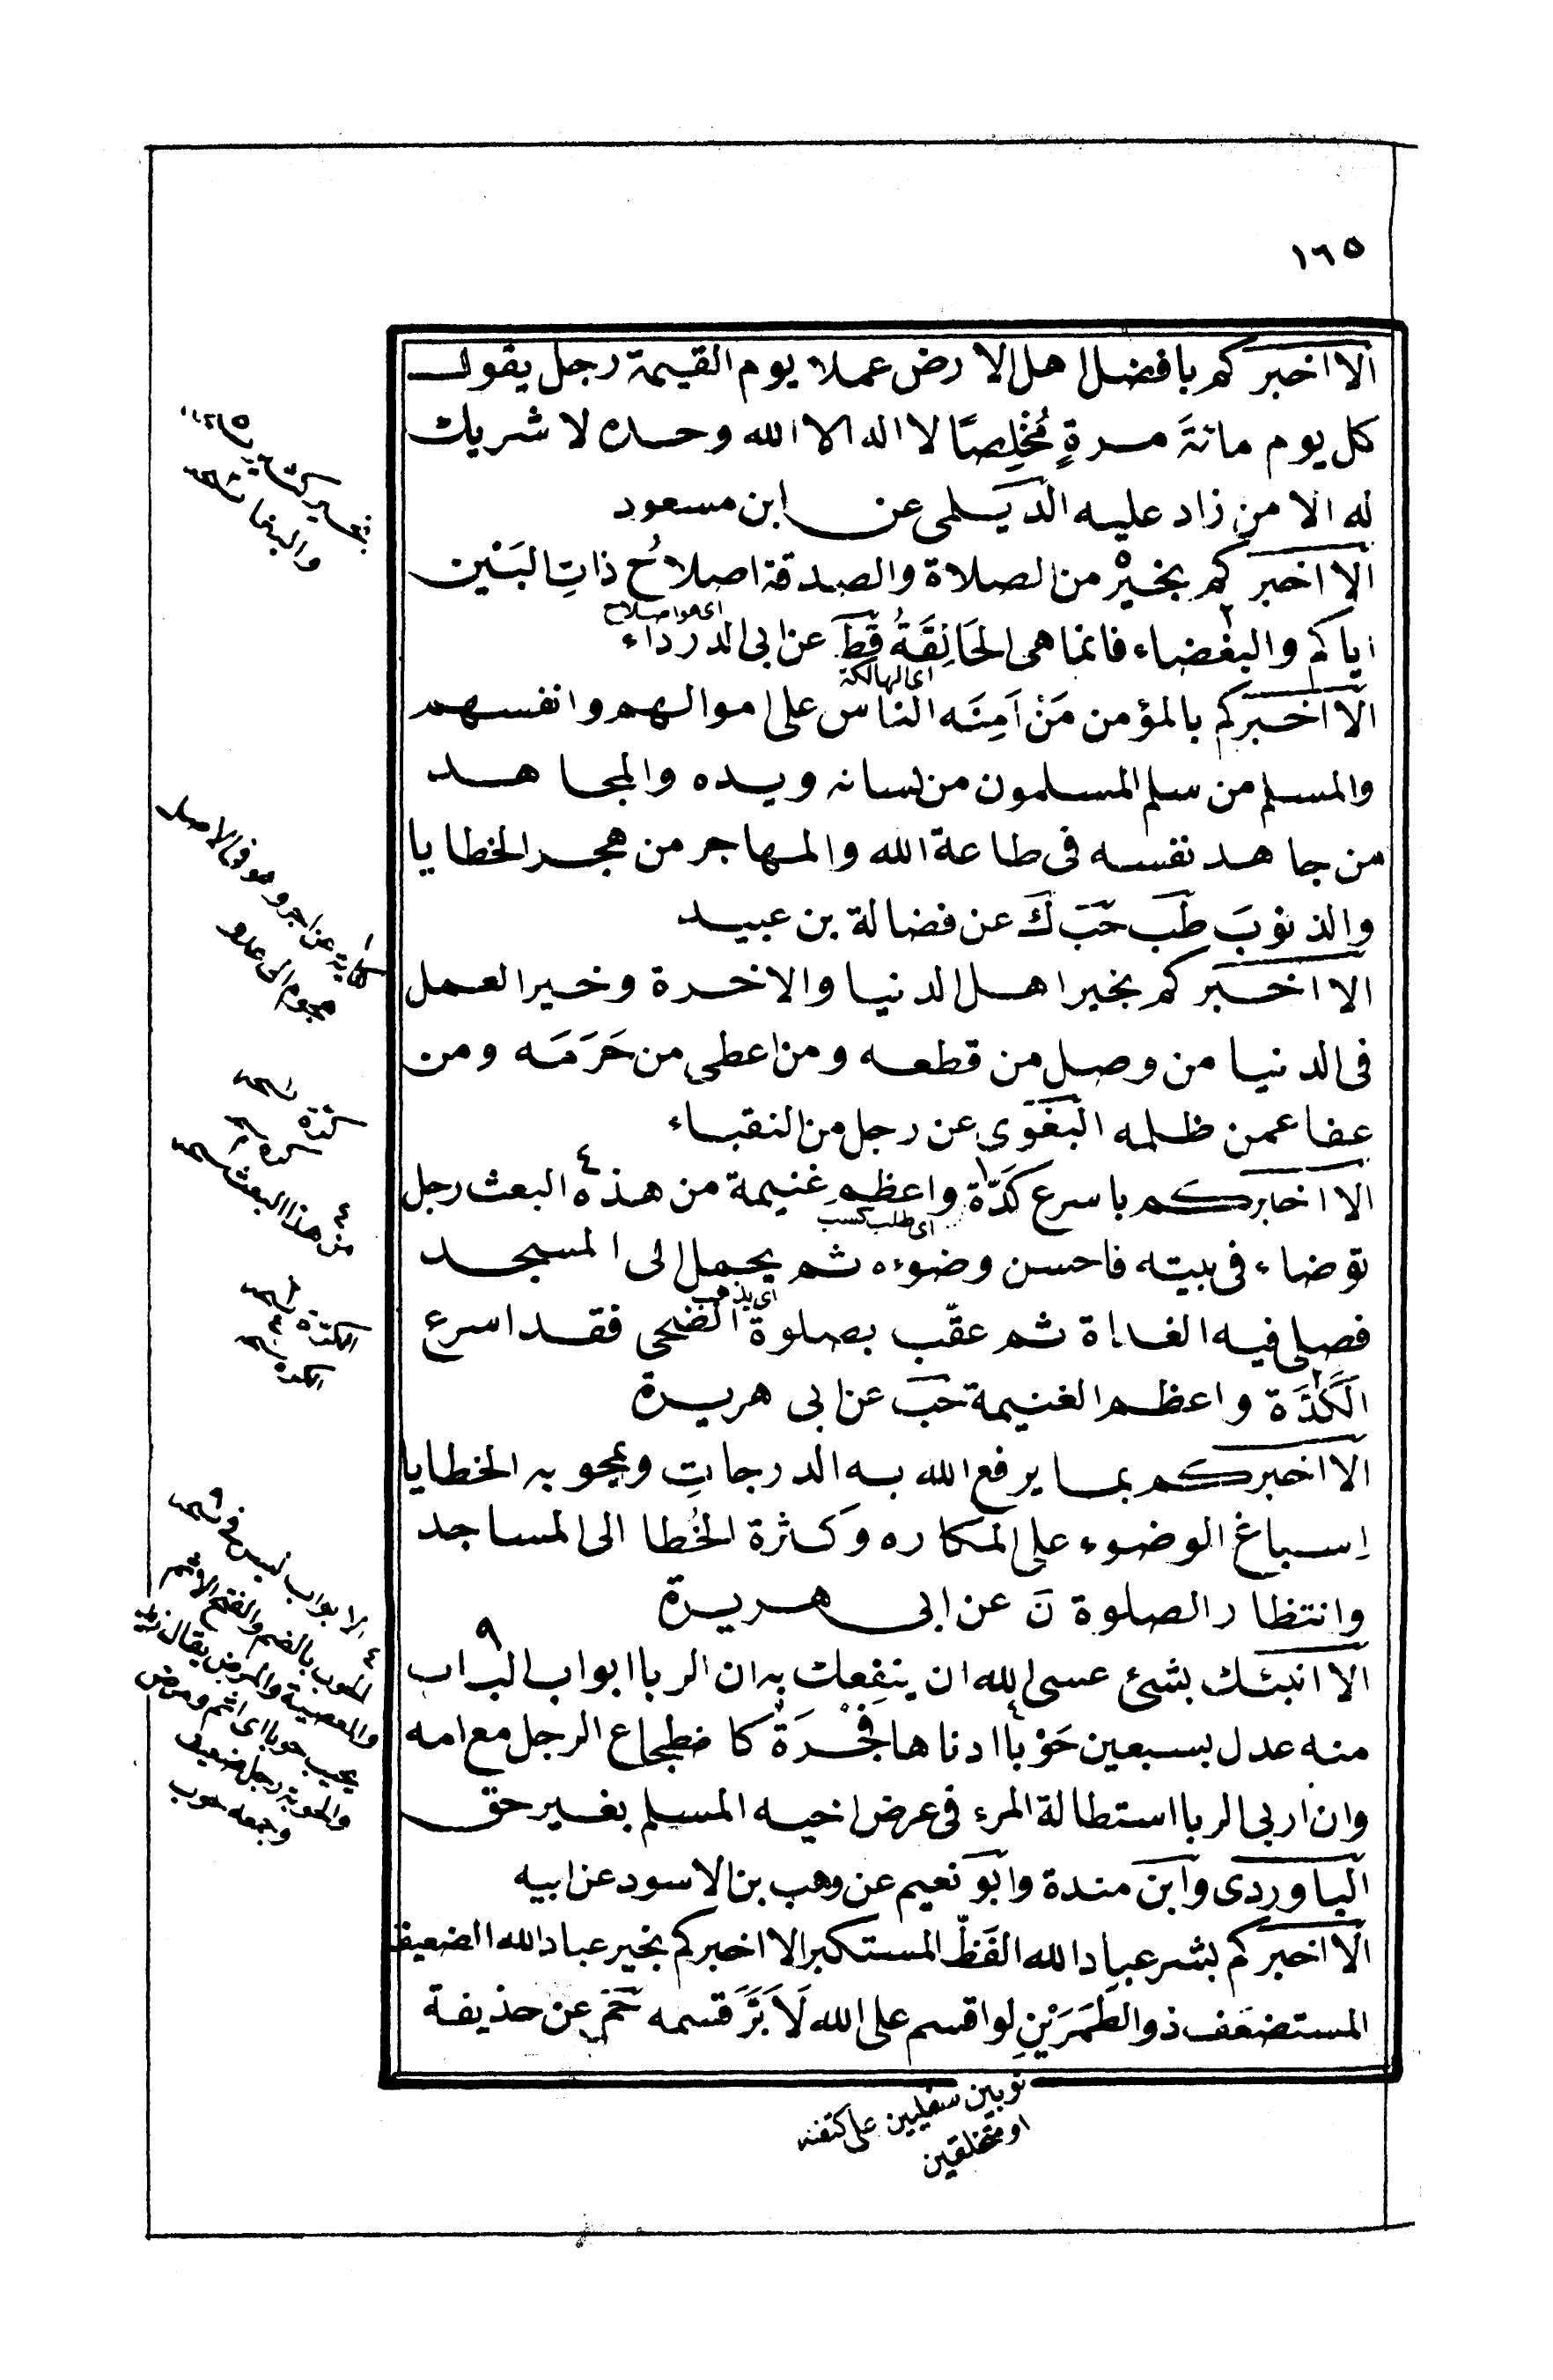 ١٦٥
الا اخبركم بافضل اهل الارض عملا يوم القيمة رجل يقول
كل يوم مائةَ مرةٍ مُخْلِصًا لا اله الا الله وحده لا شريك
له الا من زاد عليه الديلمى عن ابن مسعود
الا اخبركم بخيْر من الصلاة والصدقة اصلاحُ ذاتِ البَيْن
اى هو اصلاح
اياكم والبغضاء فانما هى الحَالِقَةُ قط عن ابى الدرداء
اى الهالكة
الا اخبركم بالمؤمن مَنْ اَمِنَه الناس على اموالهم وانفسهم
والمسلم من سلم المسلمون من لسانه ويده والمجاهد
من جاهد نفسه فى طاعة الله والمهاجر من هجر الخطايا
والذنوبَ طب حب ك عن فضالة بن عبيد
الا اخبركم بخير اهل الدنيا والاخرة وخير العمل
فى الدنيا من وصل من قطعه ومن اعطى من حَرَمَه ومن
عفا عمن ظلمه البغوى عن رجل من النقباء
الا اخابركم باسرع كَدَّة واعظم غنيمة من هذه البعث رجل
اى طلب كسب
توضاء فى بيته فاحسن وضوءه ثم يحمل الى المسجد
اى يذهب
فصلى فيه الغداة ثم عقّب بصلوة الضحى فقد اسرع
الكَدَّة واعظم الغنيمة حب عن ابى هريرة
الا اخبركم بما يرفع الله به الدرجاتِ ويمحو به الخطايا
اِسباغ الوضوء على المكاره وكثرة الخُطا الى المساجد
وانتظار الصلوة ن عن ابى هريرة
الا انبئك بشئ عسى الله ان ينفعك به ان الربا ابواب الباب
منه عدل بسبعين حَوْبا ادناها فَجْرَة كاضطجاع الرجل مع امه
وان اربى الربا استطالة المرء فى عرض اخيه المسلم بغير حق
الباوردى وابن مندة وابو نعيم عن وهب بن الاسود عن ابيه
الا اخبركم بشر عباد الله الفَظّ المستكبر الا اخبركم بخير عباد الله الضعيف
المستضعَف ذو الطمرَيْنِ لو اقسم على الله لَاَبَرَّ قسمه حم عن حذيفة
ثوبين سفليين على كتفنه
او متخلقين
كناية عن اجر وهو فى الاصل
هجوم الى عدو
من هذا البعث نسخه
الكدّة نسخه
الكدة نسخه
الابواب ليس فى نسخه
الحوب بالضم والفتح الاثم
وجمعه حوب